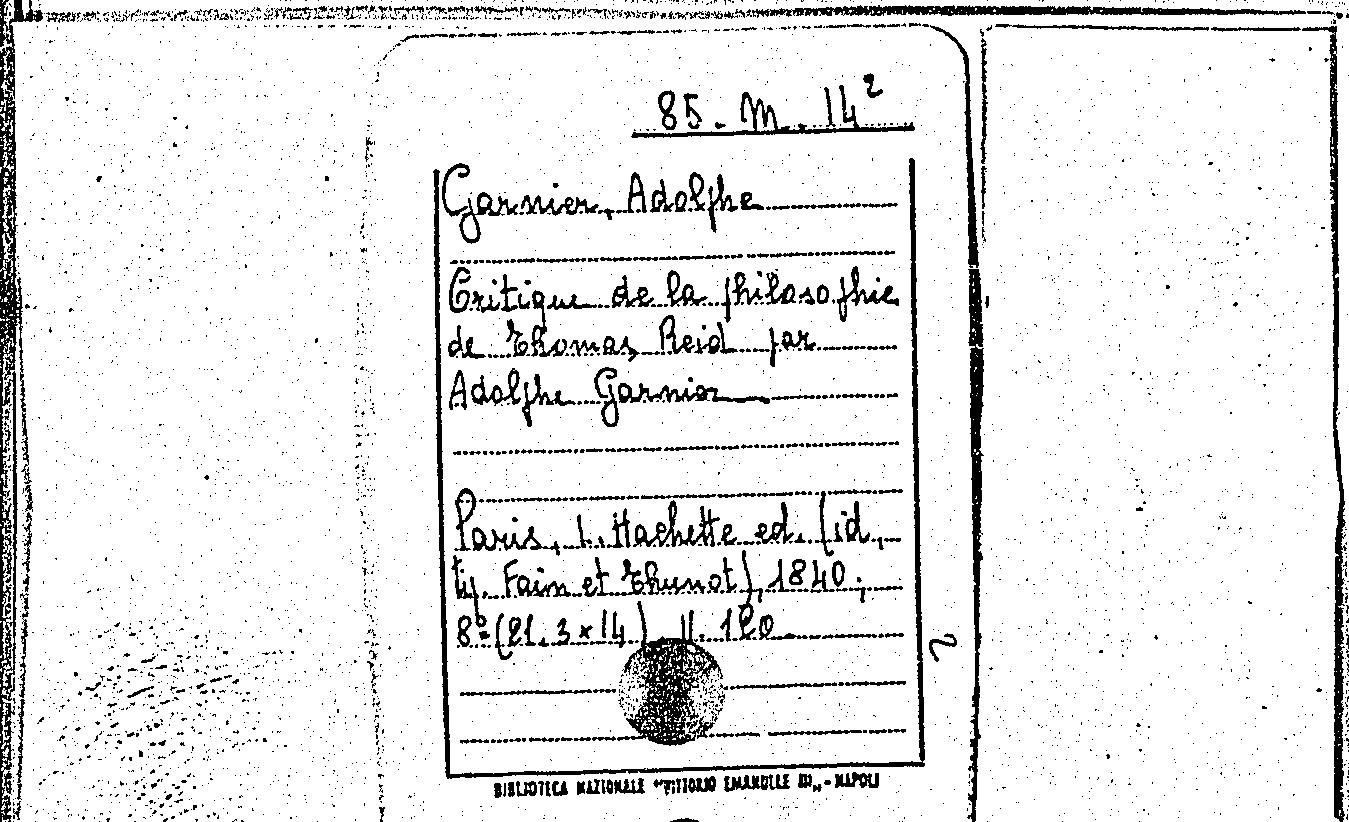 85. M. 14²
Garnier, Adolphe
Critique de la philosophie
de Thomas Reid par
Adolphe Garnier
Paris, L. Hachette ed. (id,
tip. Fain et Thunot), 1840;
8º (21.3 x 14) pp. 120
2
BIBLIOTECA NAZIONALE "VITTORIO EMANUELE III" - NAPOLI